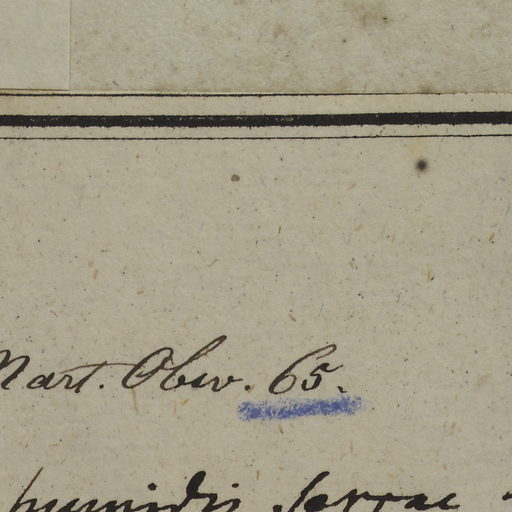 Mart. Obsv. 65.
humidis Serrae